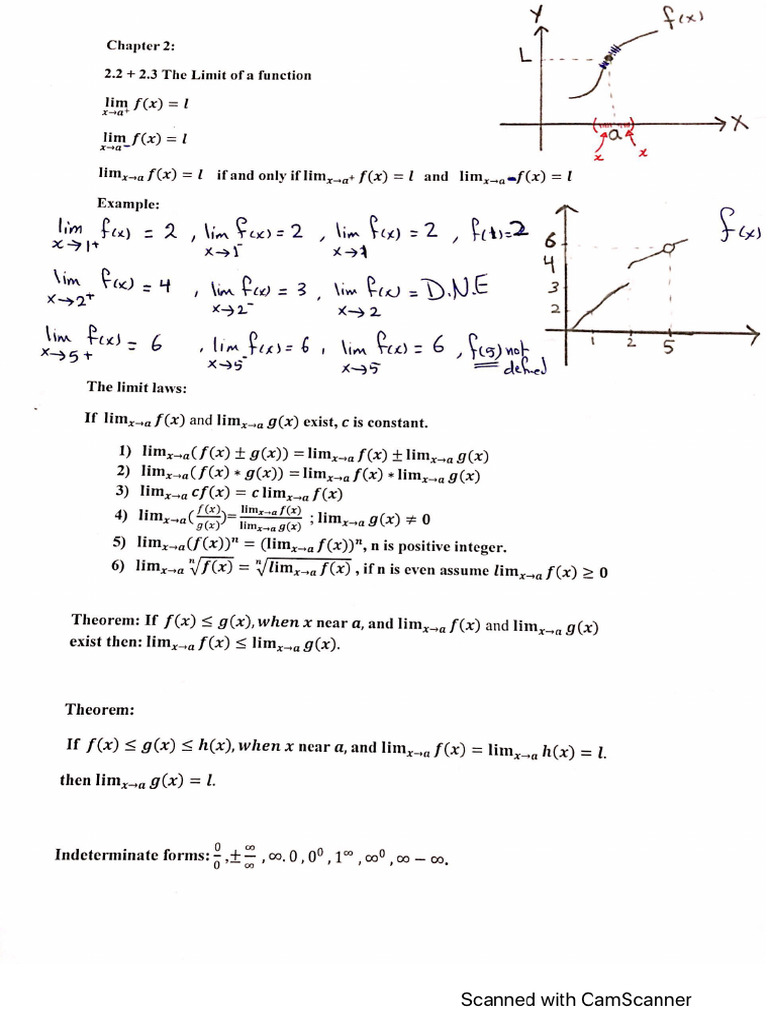 Y
f(x)
L
Chapter 2:
2.2 + 2.3 The Limit of a function
lim x→a⁺ f(x) = l
X
a
x x
lim x→a− f(x) = l
limₓ→ₐ f(x) = l if and only if limₓ→ₐ⁺ f(x) = l and limₓ→ₐ− f(x) = l
Example:
lim x→1⁺ f(x) = 2 , lim x→1⁻ f(x) = 2 , lim x→1 f(x) = 2 , f(1)=2
f(x)
6
4
3
2
1 2 5
lim x→2⁺ f(x) = 4 , lim x→2⁻ f(x) = 3 , lim x→2 f(x) = D.N.E
lim x→5+ f(x) = 6 , lim x→5⁻ f(x) = 6 , lim x→5 f(x) = 6 , f(5) not
defined
The limit laws:
If limₓ→ₐ f(x) and limₓ→ₐ g(x) exist, c is constant.
1) limₓ→ₐ(f(x) ± g(x)) = limₓ→ₐ f(x) ± limₓ→ₐ g(x)
2) limₓ→ₐ(f(x) * g(x)) = limₓ→ₐ f(x) * limₓ→ₐ g(x)
3) limₓ→ₐ cf(x) = c limₓ→ₐ f(x)
4) limₓ→ₐ(f(x)/g(x)) = limₓ→ₐ f(x)/limₓ→ₐ g(x) ; limₓ→ₐ g(x) ≠ 0
5) limₓ→ₐ(f(x))ⁿ = (limₓ→ₐ f(x))ⁿ, n is positive integer.
6) limₓ→ₐ ⁿ√f(x) = ⁿ√limₓ→ₐ f(x) , if n is even assume limₓ→ₐ f(x) ≥ 0
Theorem: If f(x) ≤ g(x), when x near a, and limₓ→ₐ f(x) and limₓ→ₐ g(x)
exist then: limₓ→ₐ f(x) ≤ limₓ→ₐ g(x).
Theorem:
If f(x) ≤ g(x) ≤ h(x), when x near a, and limₓ→ₐ f(x) = limₓ→ₐ h(x) = l.
then limₓ→ₐ g(x) = l.
Indeterminate forms: 0/0 ,± ∞/∞ , ∞. 0 , 0⁰ , 1^∞ , ∞⁰ , ∞ − ∞.
Scanned with CamScanner